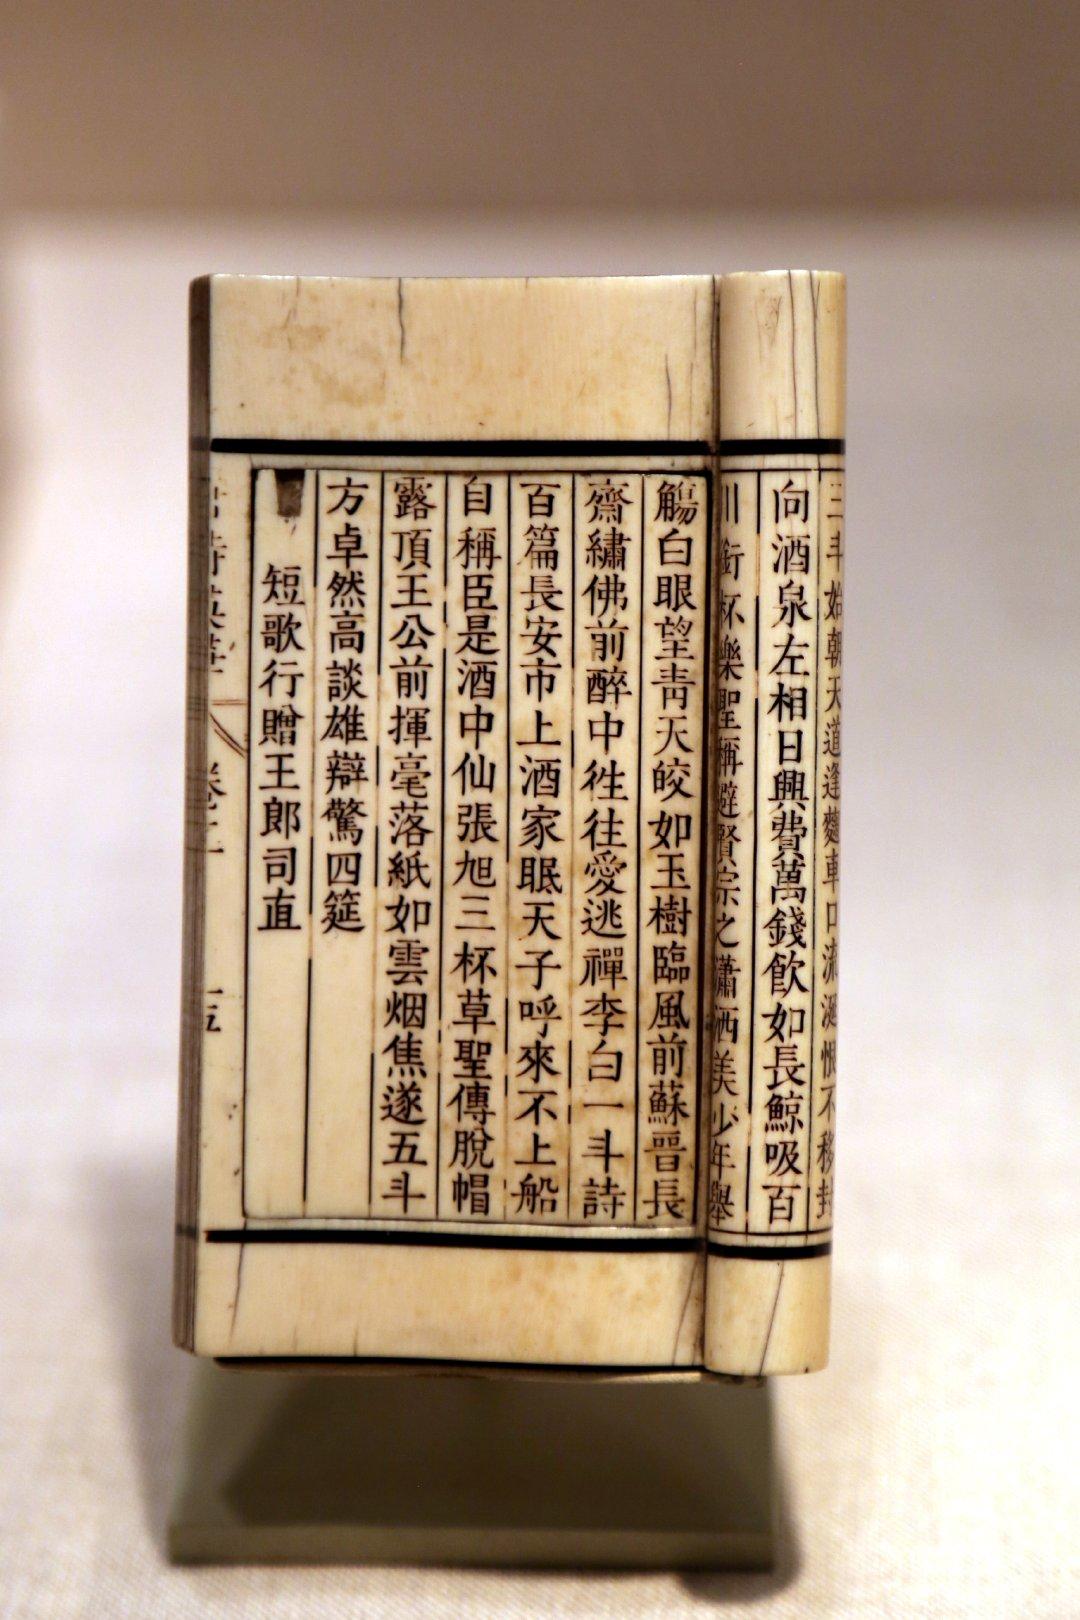 三斗始朝天道逢麴車口流涎恨不移封
向酒泉左相日興費萬錢飲如長鯨吸百
川銜杯樂聖稱避賢宗之瀟洒美少年舉
觴白眼望青天皎如玉樹臨風前蘇晉長
齋繡佛前醉中徃往愛逃禪李白一斗詩
百篇長安市上酒家眠天子呼來不上船
自稱臣是酒中仙張旭三杯草聖傳脫帽
露頂王公前揮毫落紙如雲烟焦遂五斗
方卓然高談雄辯驚四筵
短歌行贈王郎司直
詩英華 卷 十五